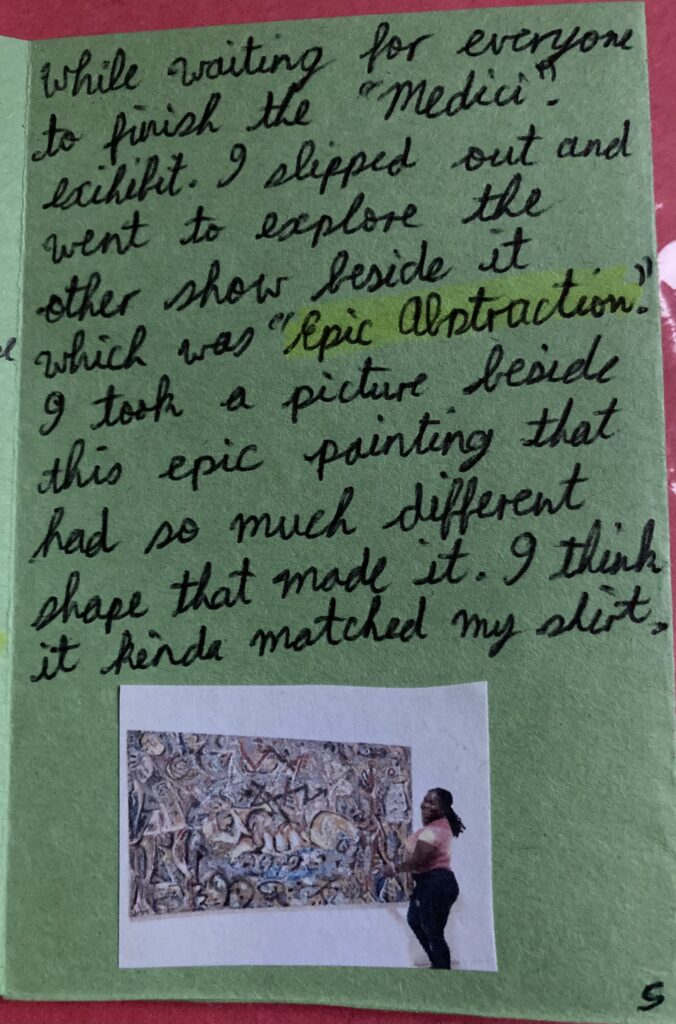 While waiting for everyone
to finish the "Medici".
exihibit. I slipped out and
went to explore the
other show beside it
which was "Epic Abstraction".
I took a picture beside
this epic painting that
had so much different
shape that made it. I think
it kinda matched my shirt.
5